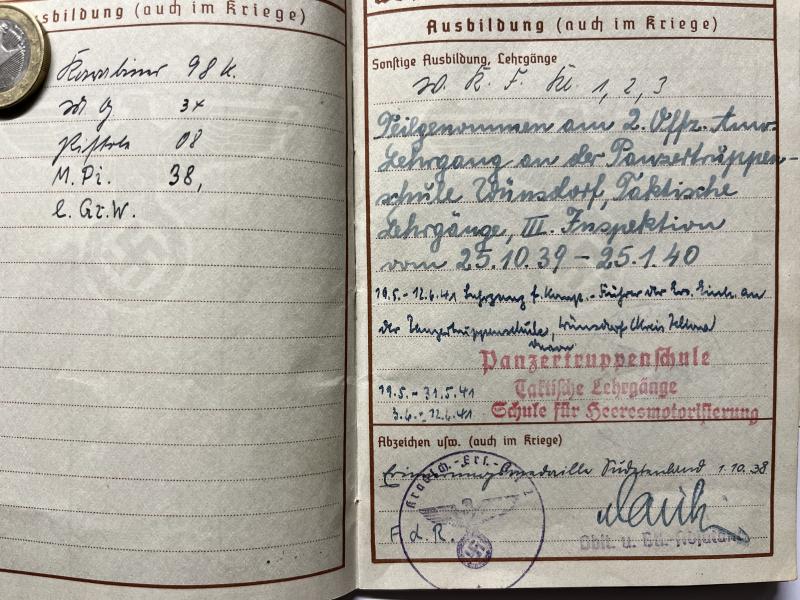 sbildung (auch im Kriege)
Karabiner 98 k.
Pistole 08
M. Pi. 38,
l. Gr. W.
Ausbildung (auch im Kriege)
Sonstige Ausbildung, Lehrgänge
Kl. 1, 2, 3
Teilgenommen am 2. Offz. Anw.-
Lehrgang an der Panzertruppen-
schule Wünsdorf, Taktische
Lehrgänge, III. Inspektion
vom 25.10.39 – 25.1.40
19.5. - 12.6.41 Lehrgang f. Komp.-Führer der Ers. Einh. an
der Panzertruppenschule, Wünsdorf Kreis Teltow
davon
Panzertruppenschule
19.5. - 31.5.41
Taktische Lehrgänge
3.6. - 12.6.41
Schule für Heeresmotorisierung
Abzeichen usw. (auch im Kriege)
Erinnerungsmedaille Sudetenland 1.10.38
F. d. R.
Oblt. u.